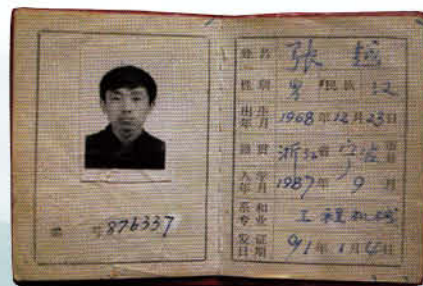 号 876337
姓名 张越
性别 男 民族 汉
出生年月 1968年12月23日
籍贯 浙江省宁波市县
入学年月 1987年9月
系和专业 工程机械
发证日期 91年1月4日